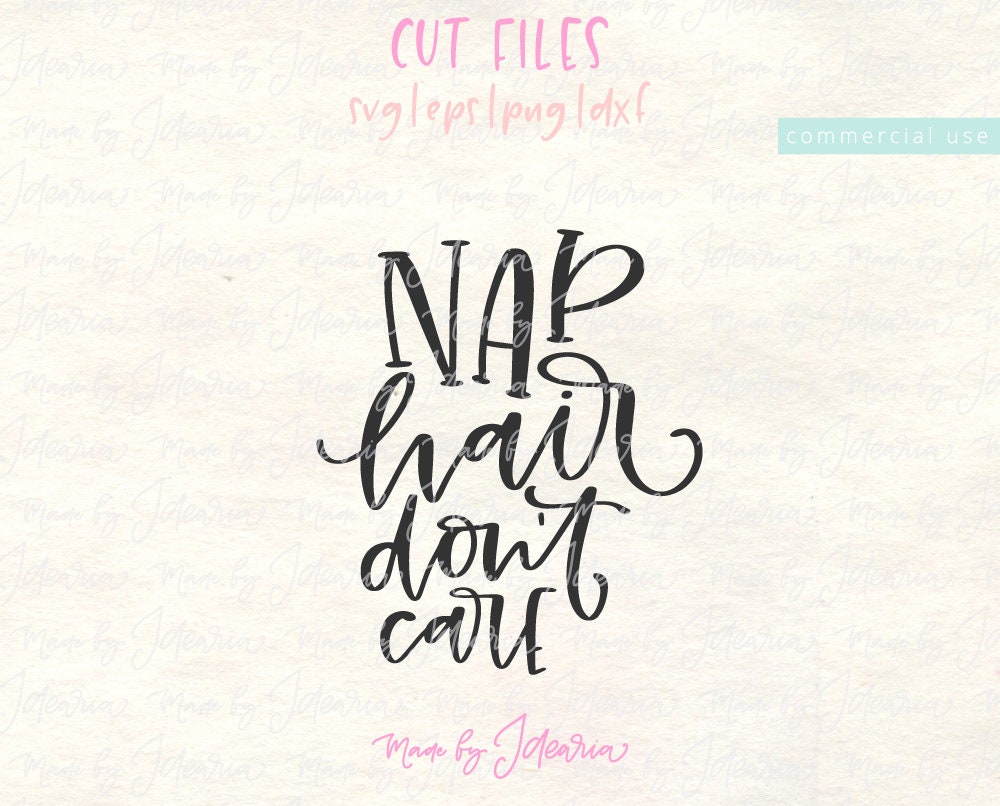 CUT FILES
svg|eps|png|dxf
commercial use
NAP
hair
don't
care
Made by Idearia